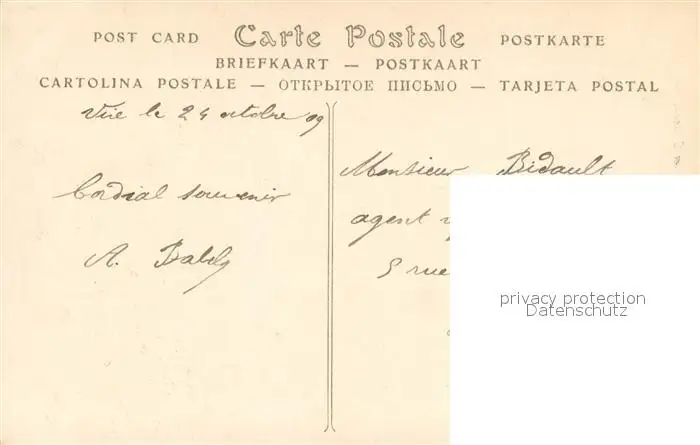 POST CARD Carte Postale POSTKARTE
BRIEFKAART — POSTKAART
CARTOLINA POSTALE — ОТКРЫТОЕ ПИСЬМО — TARJETA POSTAL
Vire le 24 octobre 09
Cordial souvenir
A.
Monsieur Bidault
agent
5 rue
privacy protection
Datenschutz